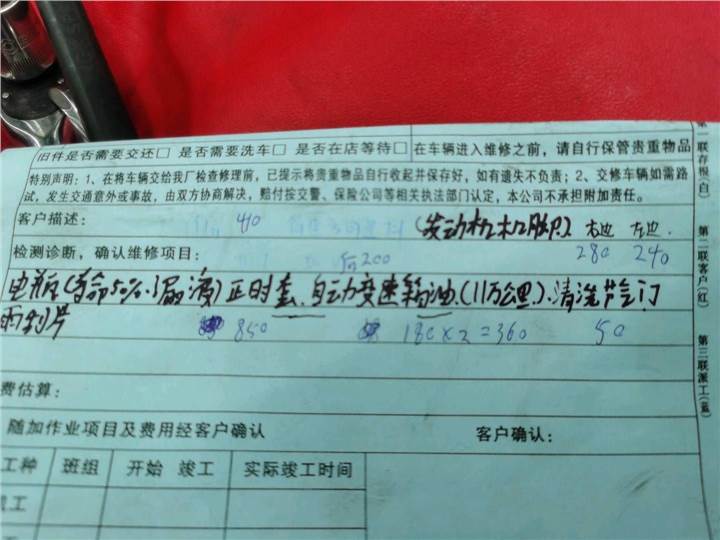 旧件是否需要交还□ 是否需要洗车□ 是否在店等待□ 在车辆进入维修之前，请自行保管贵重物品
特别声明：1、在将车辆交给我厂检查修理前，已提示将贵重物品自行收起并保存好，如有遗失不负责；2、交修车辆如需路
试，发生交通意外或事故，由双方协商解决，赔付按交警、保险公司等相关执法部门认定，本公司不承担附加责任。
客户描述： 410 (发动机机脚) 右边 左边
检测诊断，确认维修项目： 200 280 240
电瓶(寿命50% 漏液) 正时套、自动变速箱油.(11万公里).清洗节气门
雨刮片 850 180×2=360 50
费估算：
随加作业项目及费用经客户确认 客户确认：
工种 班组 开始 竣工 实际竣工时间
工
第一联存根(白)
第二联客户(红)
第三联派工(蓝)